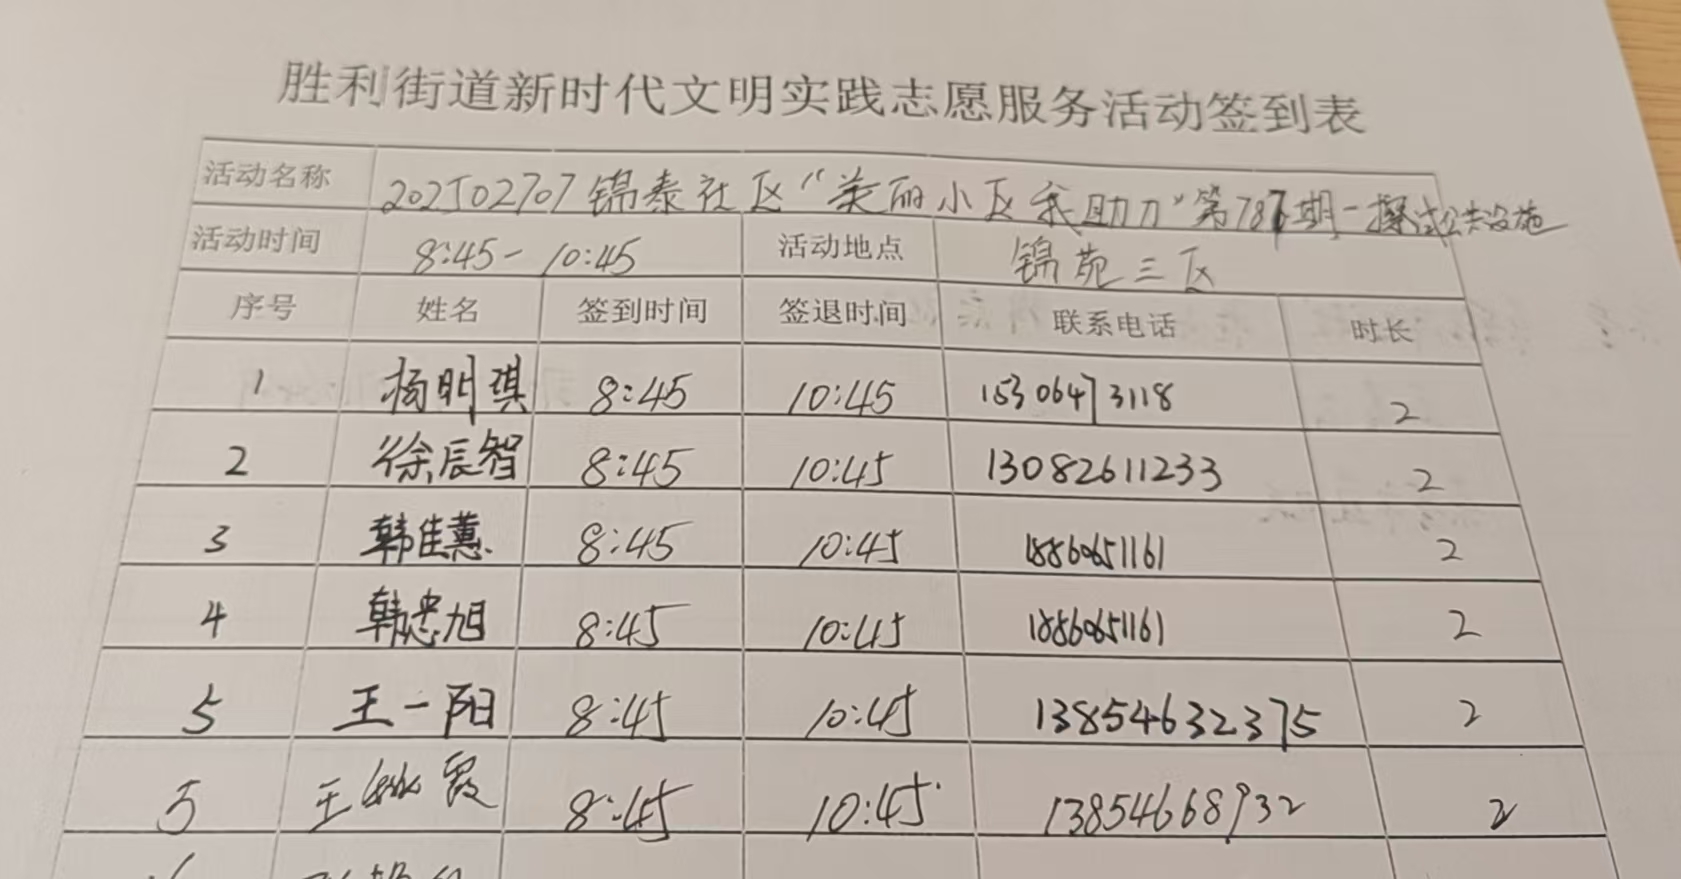 胜利街道新时代文明实践志愿服务活动签到表
活动名称 202502707锦泰社区“美丽小区我助力”第787期-擦拭公共设施
活动时间 8:45-10:45 活动地点 锦苑三区
序号 姓名 签到时间 签退时间 联系电话 时长
1 杨明琪 8:45 10:45 15306473118 2
2 徐辰智 8:45 10:45 13082611233 2
3 韩佳蕙 8:45 10:45 18860651161 2
4 韩忠旭 8:45 10:45 18860651161 2
5 王一阳 8:45 10:45 13854632375 2
5 王 霞 8:45 10:45 13854668932 2